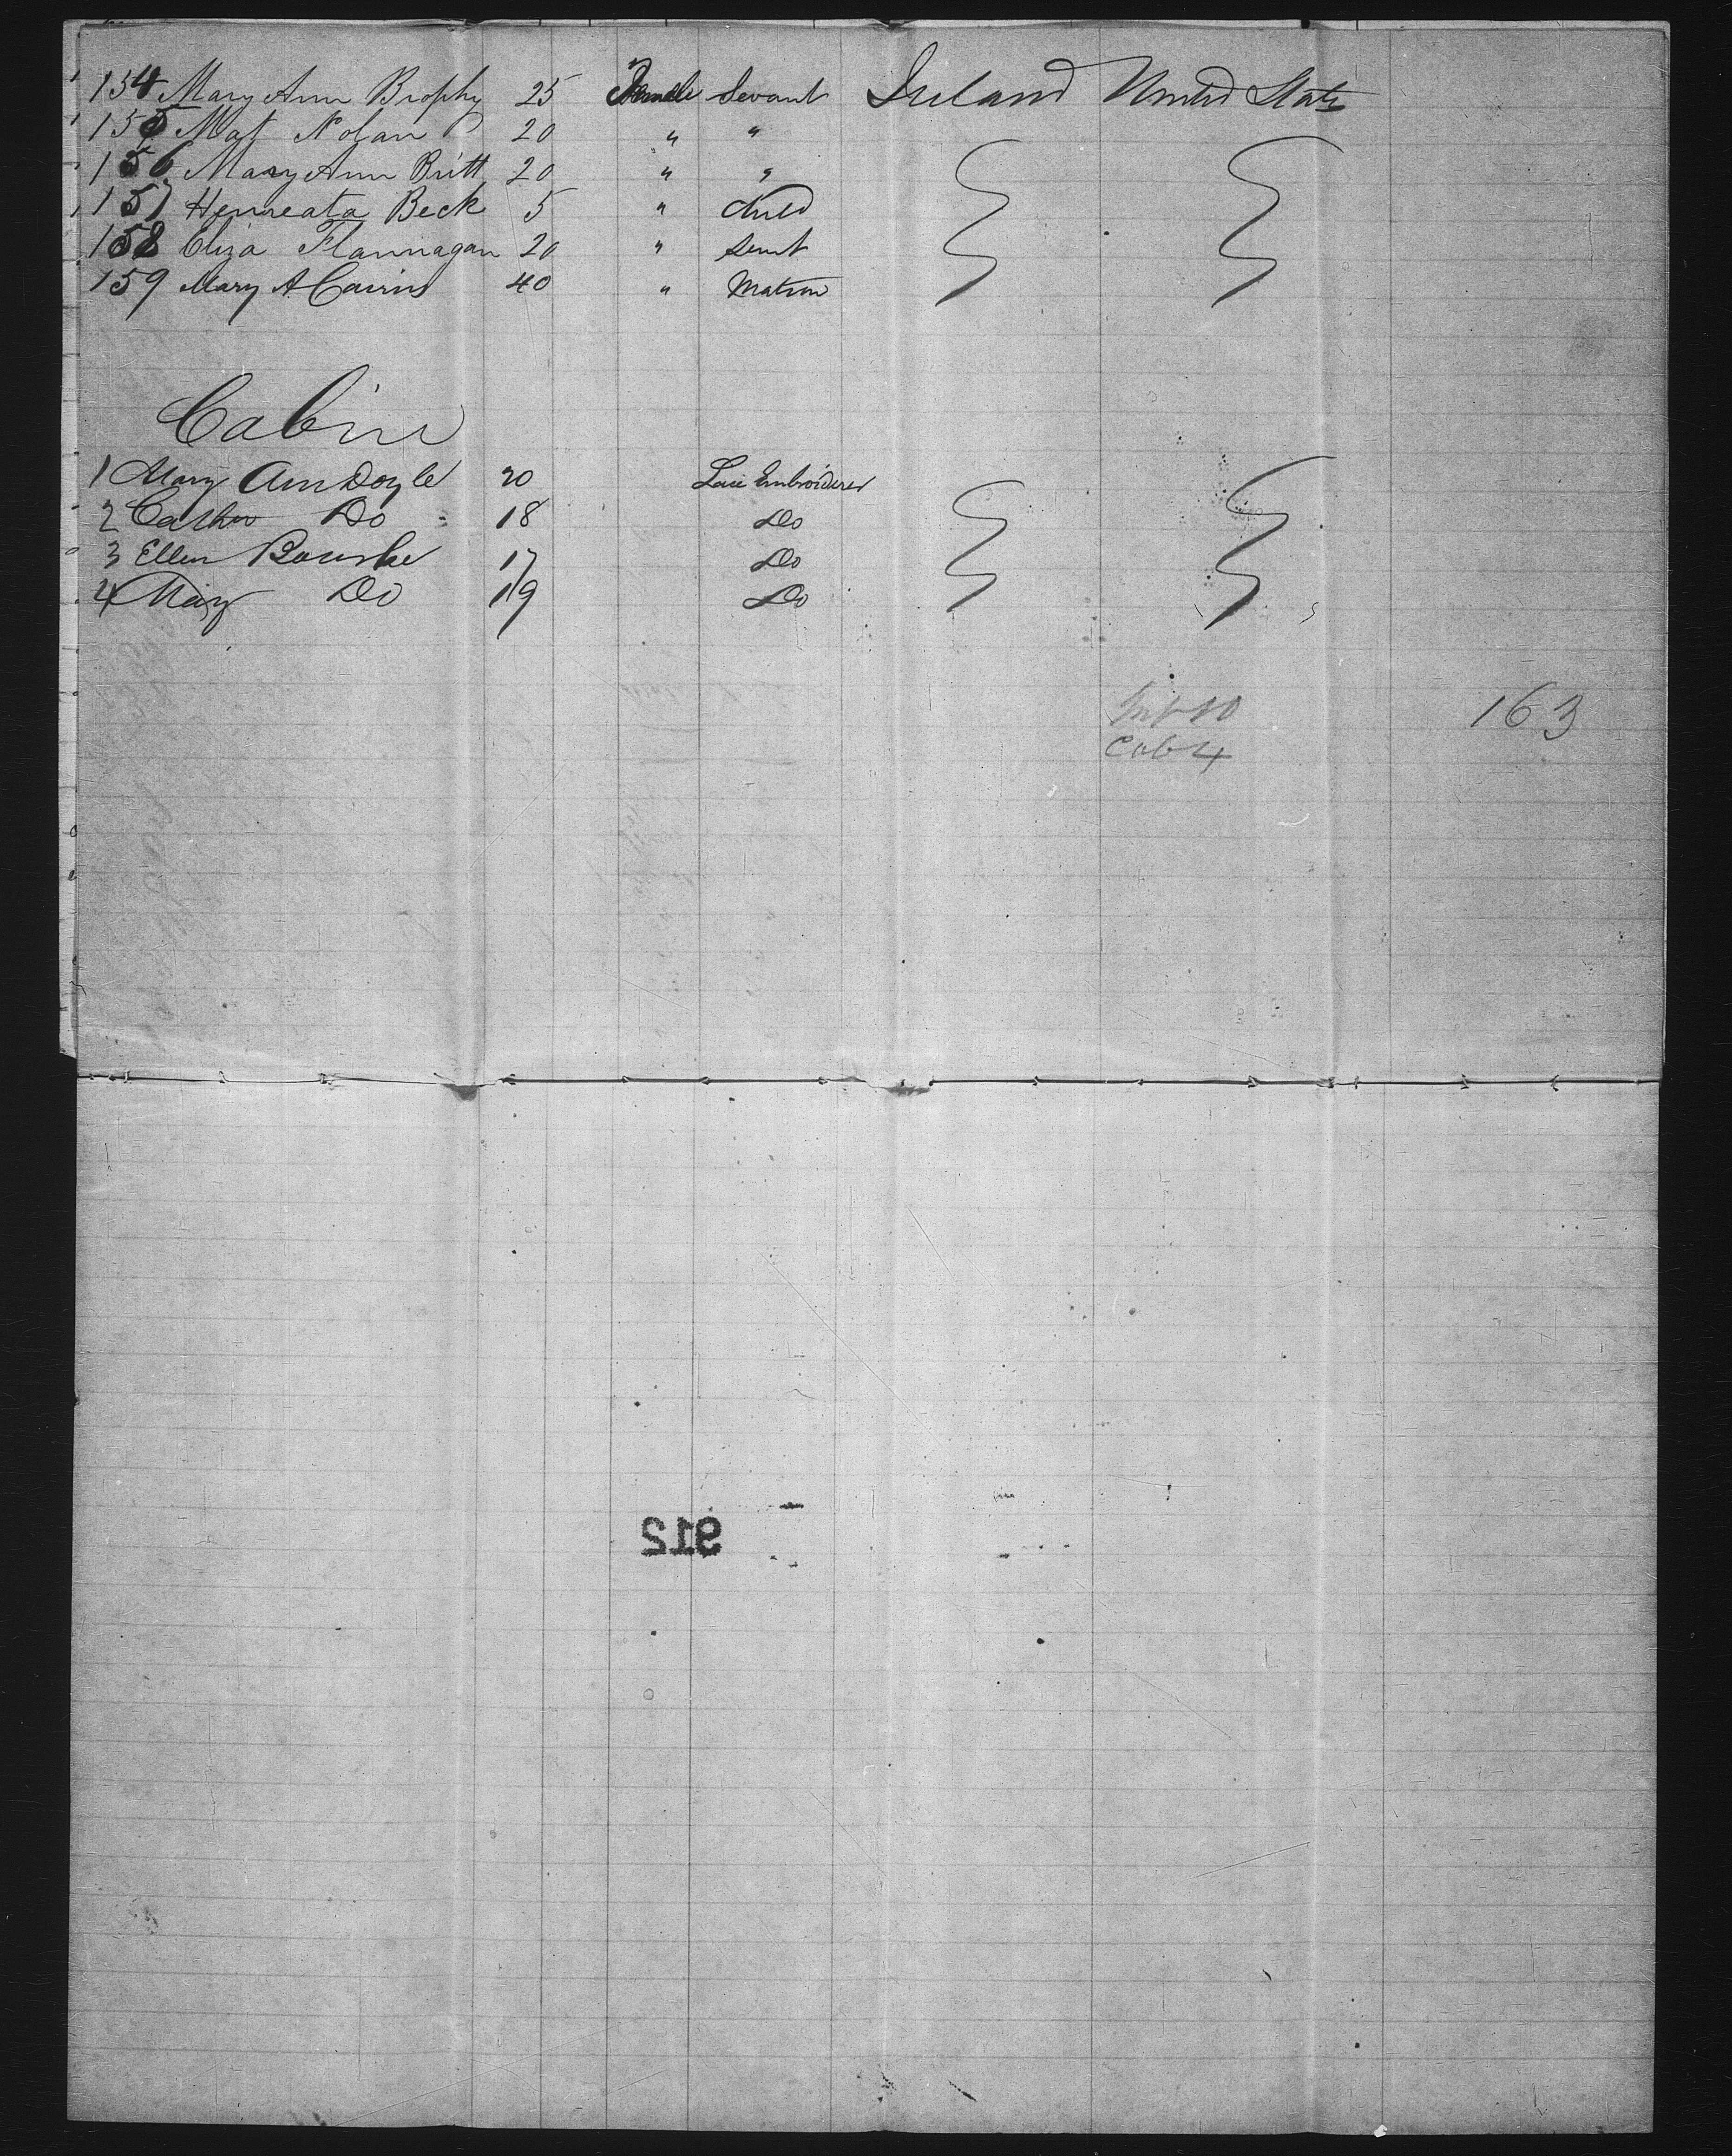 154 Mary Ann Brophy 25 Female Sevant Ireland United States
155 Mat Nolan 20 " "
156 Mary Ann Britt 20 " "
157 Henreata Beck 5 " Child
158 Eliza Flannagan 20 " Sernt
159 Mary A Cairns 40 " Matron
Cabin
1 Mary Ann Doyle 20 Lace Embroiderer
2 Cathe Do 18 Do
3 Ellen Bourke 17 Do
4 Mary Do 19 Do
Inf 10 163
Cab 4
912